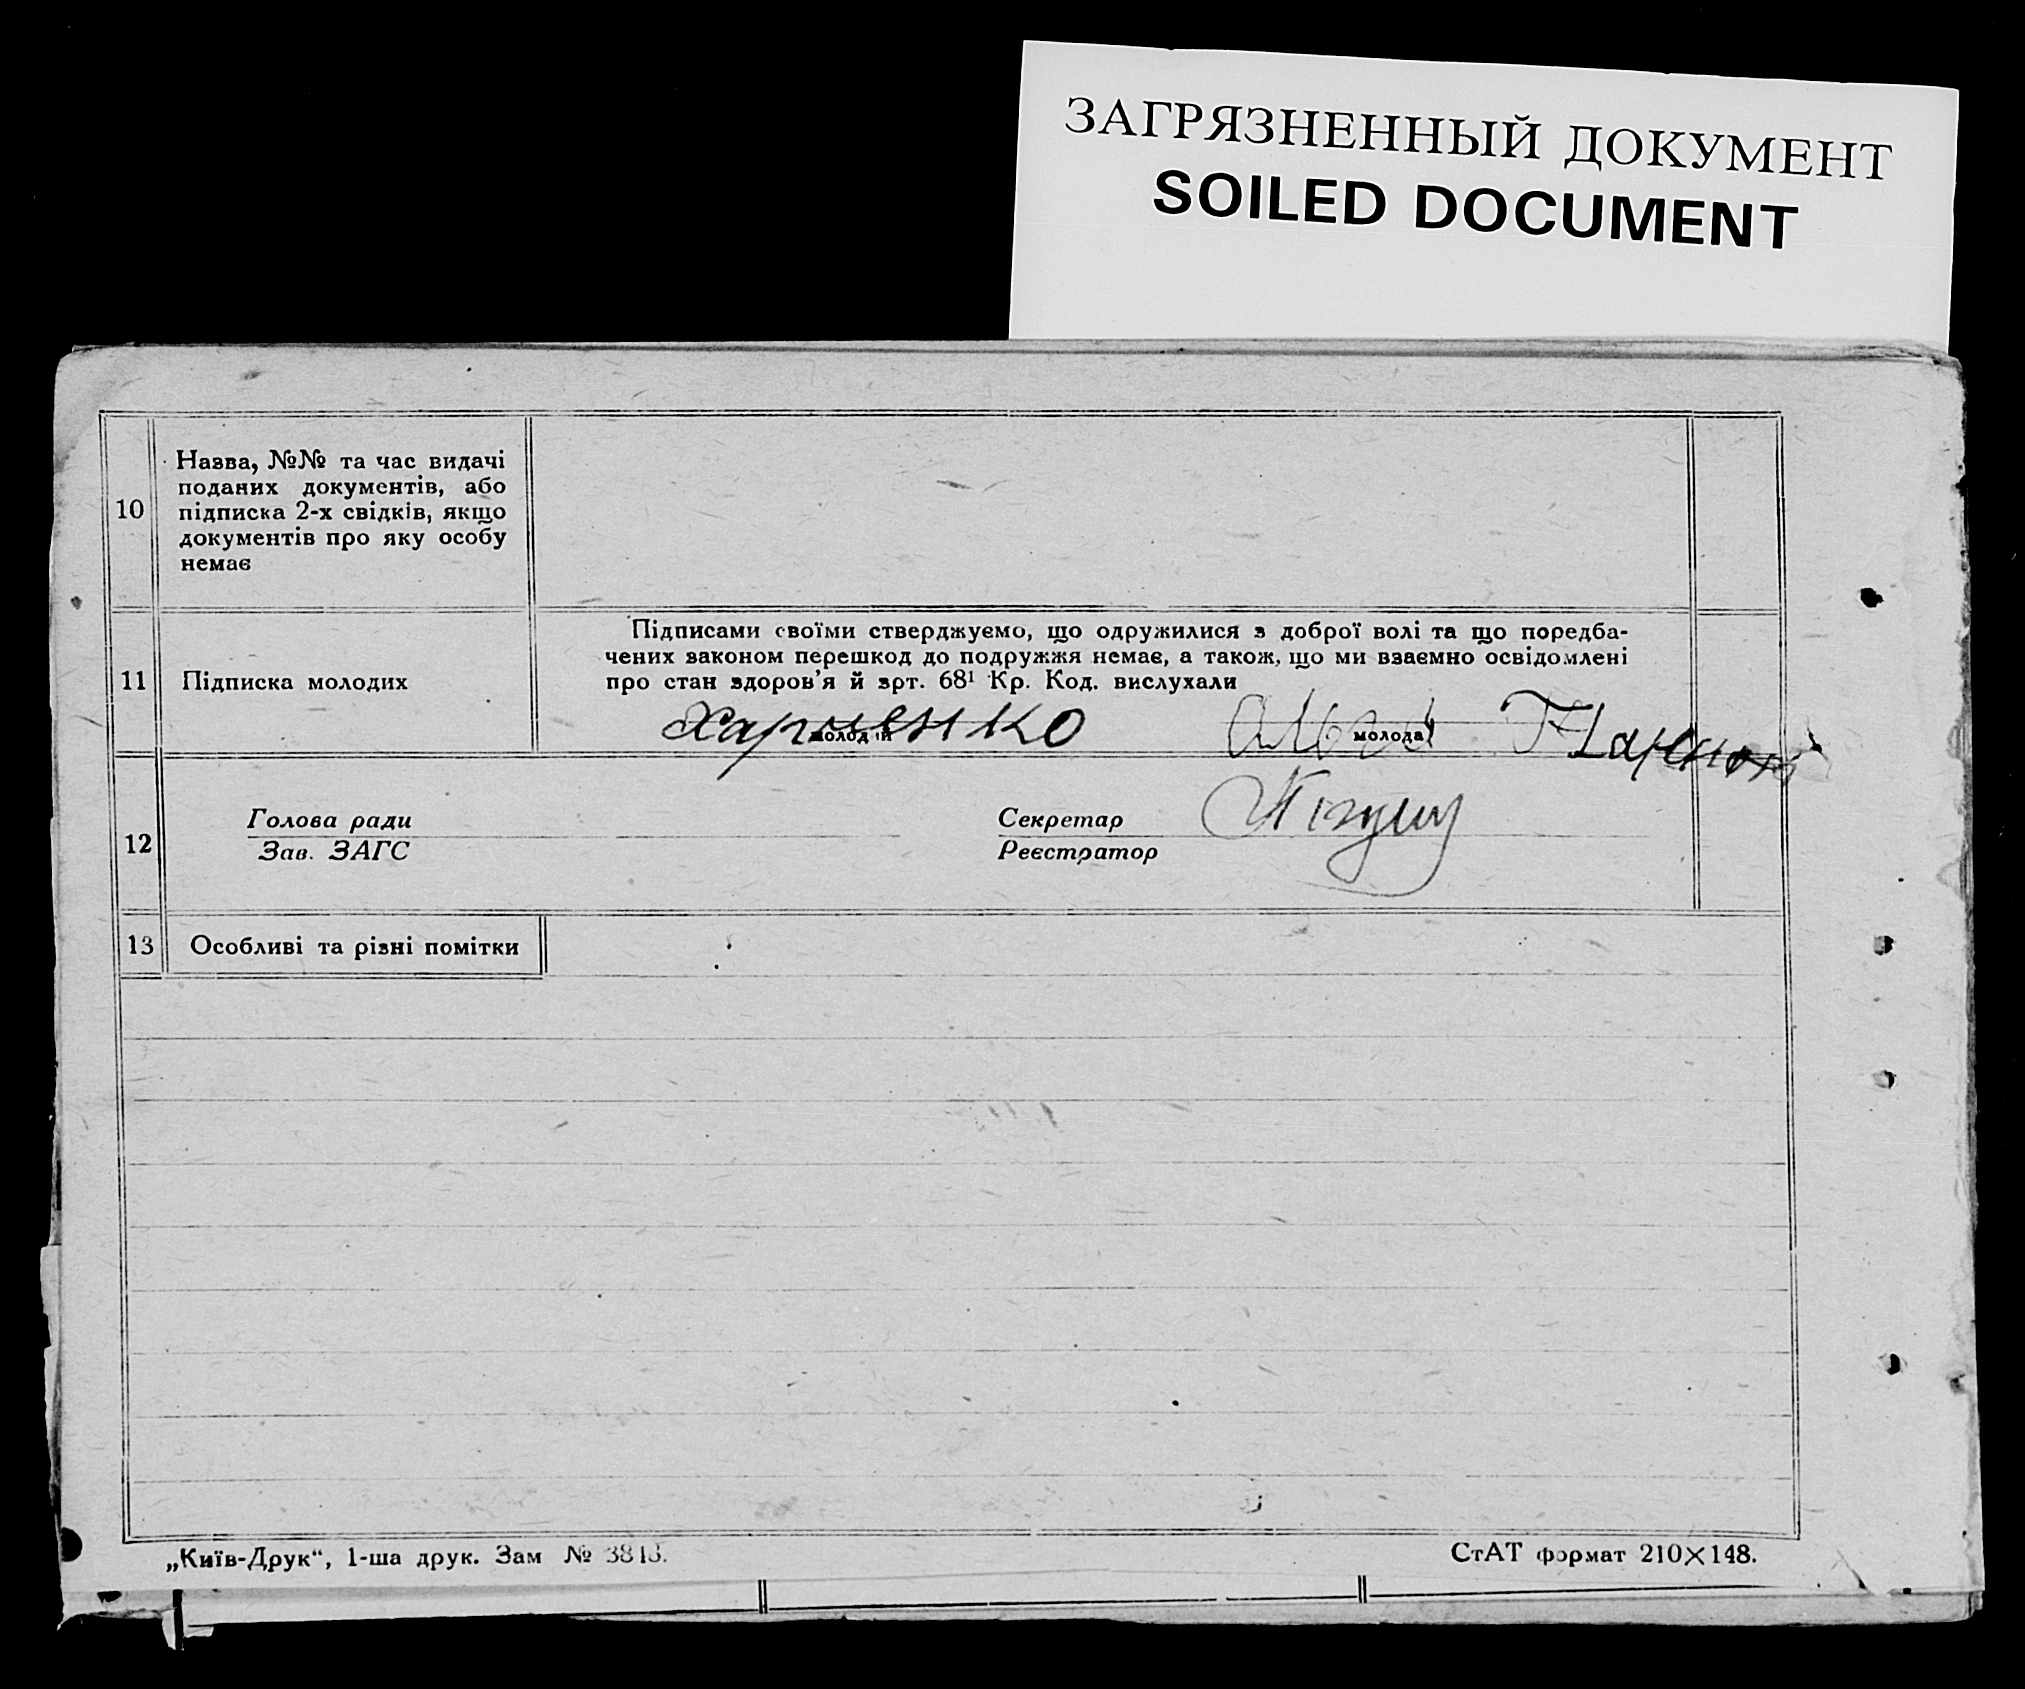 ЗАГРЯЗНЕННЫЙ ДОКУМЕНТ
SOILED DOCUMENT
10
Назва, №№ та час видачі
поданих документів, або
підписка 2-х свідків, якщо
документів про яку особу
немає
11
Підписка молодих
Підписами своїми стверджуємо, що одружилися з доброї волі та що поредба-
чених законом перешкод до подружжя немає, а також, що ми взаємно освідомлені
про стан здоров'я й зрт. 68¹ Кр. Код. вислухали
Харченко
молодий
молода
12
Голова ради
Зав. ЗАГС
Секретар
Реєстратор
13
Особливі та різні помітки
„Київ-Друк“, 1-ша друк. Зам №
СтАТ формат 210×148.